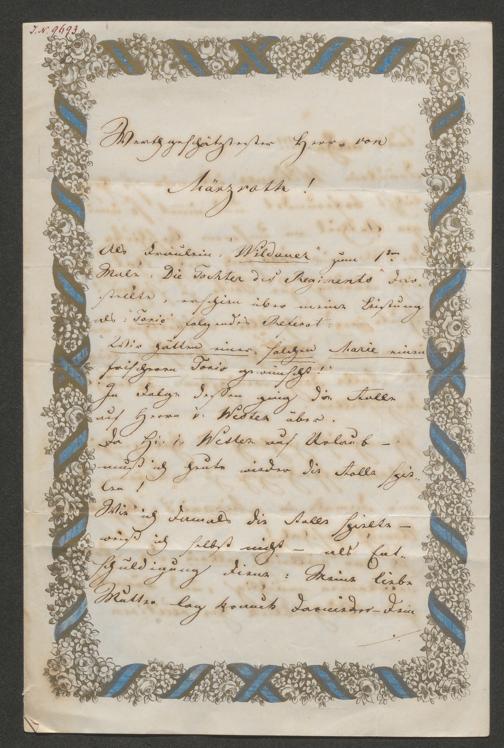 J. N. 9693
Werthgeschätztester Herr von
Märzroth!
Als Fräulein "Wildauer" zum 1ten
Male "Die Tochter des Regiments" dar-
stellte, erschien über meine Leistung
als "Tonio" folgendes Referat:
"Wir hätten einer solchen Marie einen
frischeren Tonio gewünscht!"
In Folge dessen ging die Rolle
auf Herrn v. Westen über.
Da H: v: Westen auf Urlaub –
muß ich heute wieder die Rolle spie-
len!
Wie ich damals die Rolle spielte –
weiß ich selbst nicht – als Ent-
schuldigung diene: Meine liebe
Mutter lag krank darnieder – dem